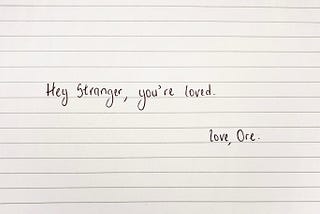 Hey Stranger, you're loved.
love, Ore.